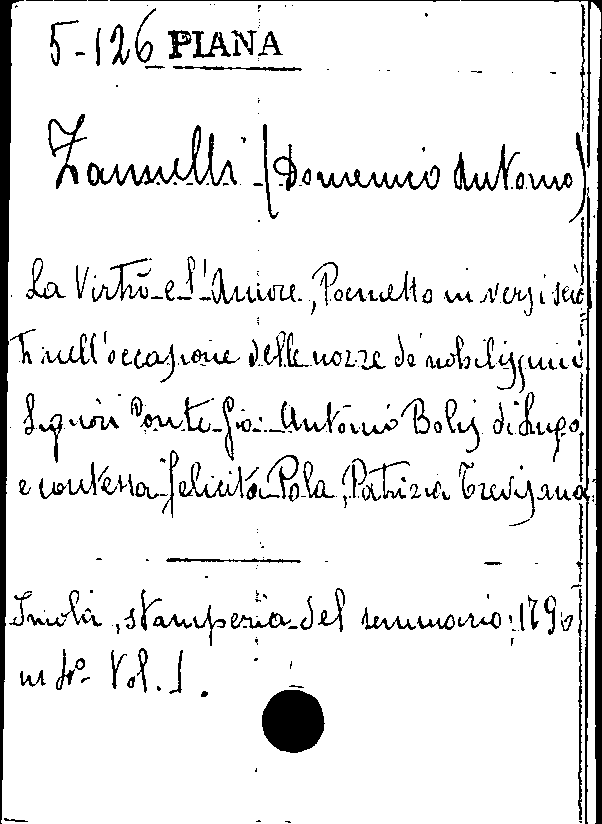 5-126 PIANA
Zannelli (Domenico Antonio)
La Virtù e l'Amore, Poemetto in versi sciol
ti nell'occasione delle nozze de' nobilissimi
Signori Conte Gio. Antonio Bolis di Lugo
e contessa Felicita Pola, Patrizia Trevisana
Imola, stamperia del seminario, 179
in 4º Vol. 1.